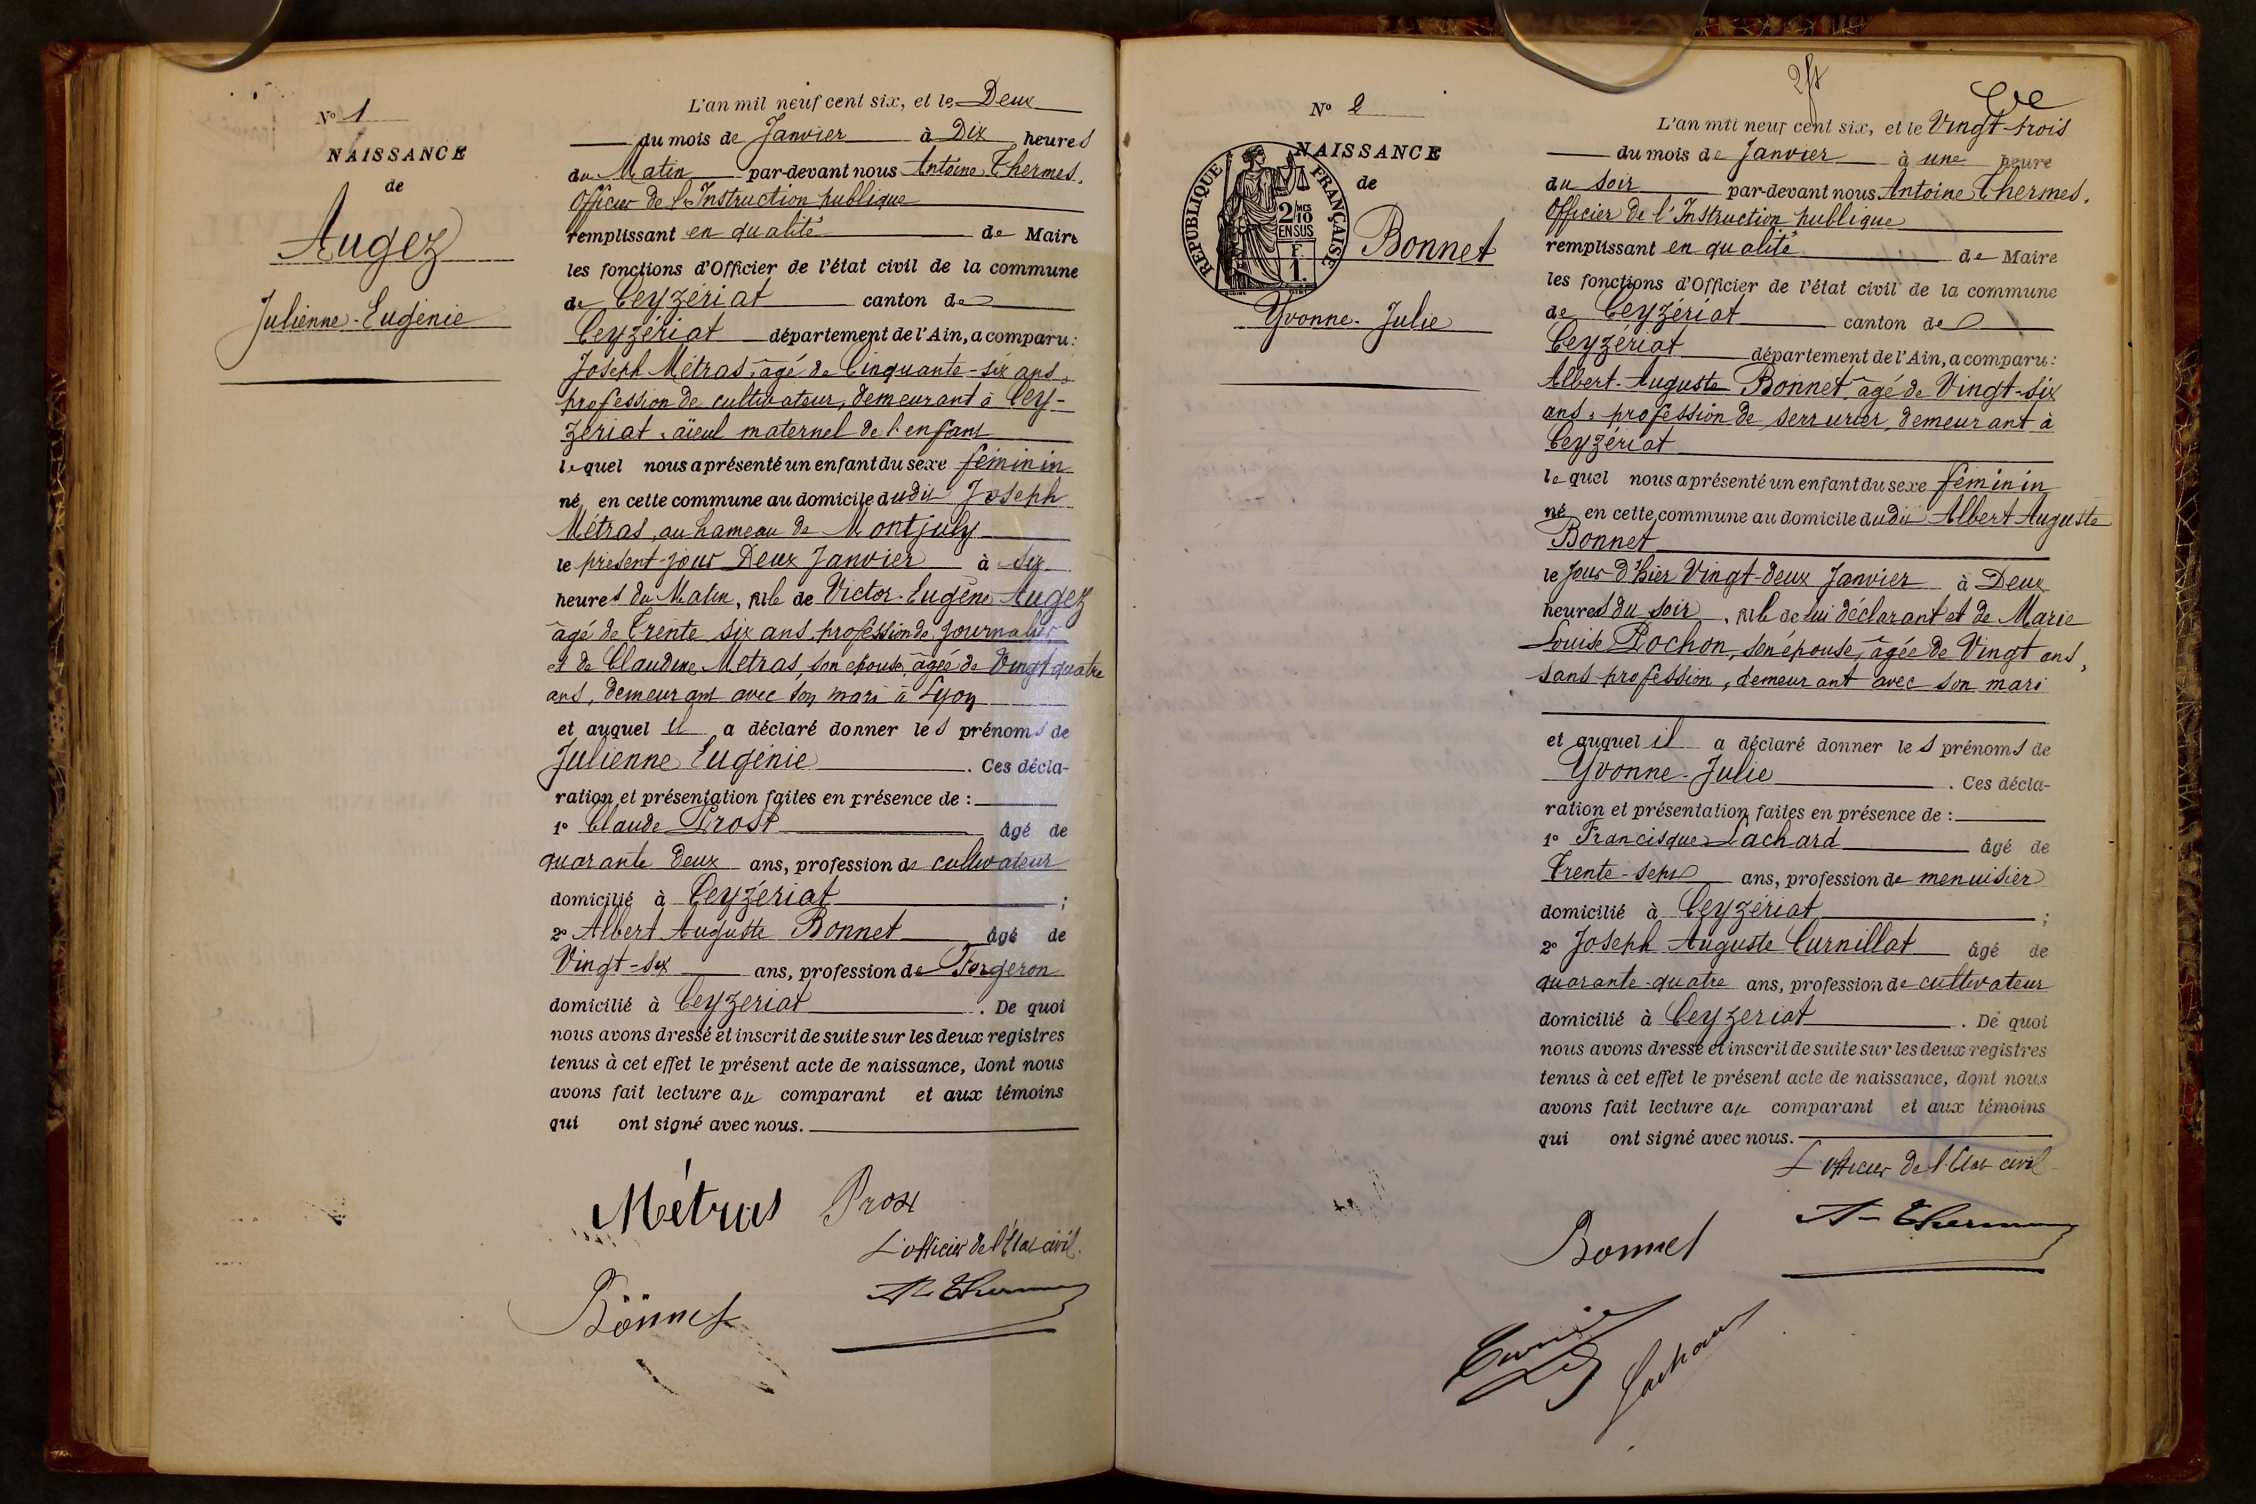 Nº 1
NAISSANCE
de
Augez
Julienne-Eugénie
L'an mil neuf cent six, et le Deux
du mois de Janvier à Dix heures
du Matin par-devant nous Antoine Thermes,
Officier de l'Instruction publique
remplissant en qualité de Maire
les fonctions d'Officier de l'état civil de la commune
de Ceyzériat canton de
Ceyzériat département de l'Ain, a comparu :
Joseph Métras, âgé de Cinquante-six ans,
profession de cultivateur, demeurant à Cey-
zériat, aïeul maternel de l'enfant
lequel nous a présenté un enfant du sexe féminin
né en cette commune au domicile dudit Joseph
Métras, au hameau de Montjuly
le présent jour Deux Janvier à six
heures du Matin, fille de Victor-Eugène Augez
âgé de Trente six ans, profession de journalier
et de Claudine Métras, son épouse, âgée de Vingt quatre
ans, demeurant avec son mari à Lyon
et auquel il a déclaré donner les prénoms de
Julienne Eugénie . Ces décla-
ration et présentation faites en présence de :
1º Claude Prost âgé de
quarante deux ans, profession de cultivateur
domicilié à Ceyzériat ;
2º Albert Auguste Bonnet âgé de
Vingt-six ans, profession de Forgeron
domicilié à Ceyzériat . De quoi
nous avons dressé et inscrit de suite sur les deux registres
tenus à cet effet le présent acte de naissance, dont nous
avons fait lecture au comparant et aux témoins
qui ont signé avec nous.
Métras Prost
L'officier de l'Etat civil
Bonnet A. Thermes
Nº 2
NAISSANCE
de
RÉPUBLIQUE FRANÇAISE
2 MES
10
EN SUS
F.
1.
Bonnet
Yvonne-Julie
L'an mil neuf cent six, et le Vingt-trois
du mois de Janvier à une heure
du soir par-devant nous Antoine Thermes,
Officier de l'Instruction publique
remplissant en qualité de Maire
les fonctions d'Officier de l'état civil de la commune
de Ceyzériat canton de
Ceyzériat département de l'Ain, a comparu :
Albert-Auguste Bonnet âgé de Vingt-six
ans, profession de serrurier, demeurant à
Ceyzériat
lequel nous a présenté un enfant du sexe féminin
né en cette commune au domicile dudit Albert Auguste
Bonnet
le jour d'hier Vingt-deux Janvier à Deux
heures du soir, fille de lui déclarant et de Marie
Louise Rochon, son épouse, âgée de Vingt ans,
sans profession, demeurant avec son mari
et auquel il a déclaré donner les prénoms de
Yvonne-Julie . Ces décla-
ration et présentation faites en présence de :
1º Francisque Lachard âgé de
Trente-sept ans, profession de menuisier
domicilié à Ceyzériat ;
2º Joseph Auguste Curnillat âgé de
quarante-quatre ans, profession de cultivateur
domicilié à Ceyzériat . De quoi
nous avons dressé et inscrit de suite sur les deux registres
tenus à cet effet le présent acte de naissance, dont nous
avons fait lecture au comparant et aux témoins
qui ont signé avec nous.
L'officier de l'Etat civil
A. Thermes
Bonnet
Lachard